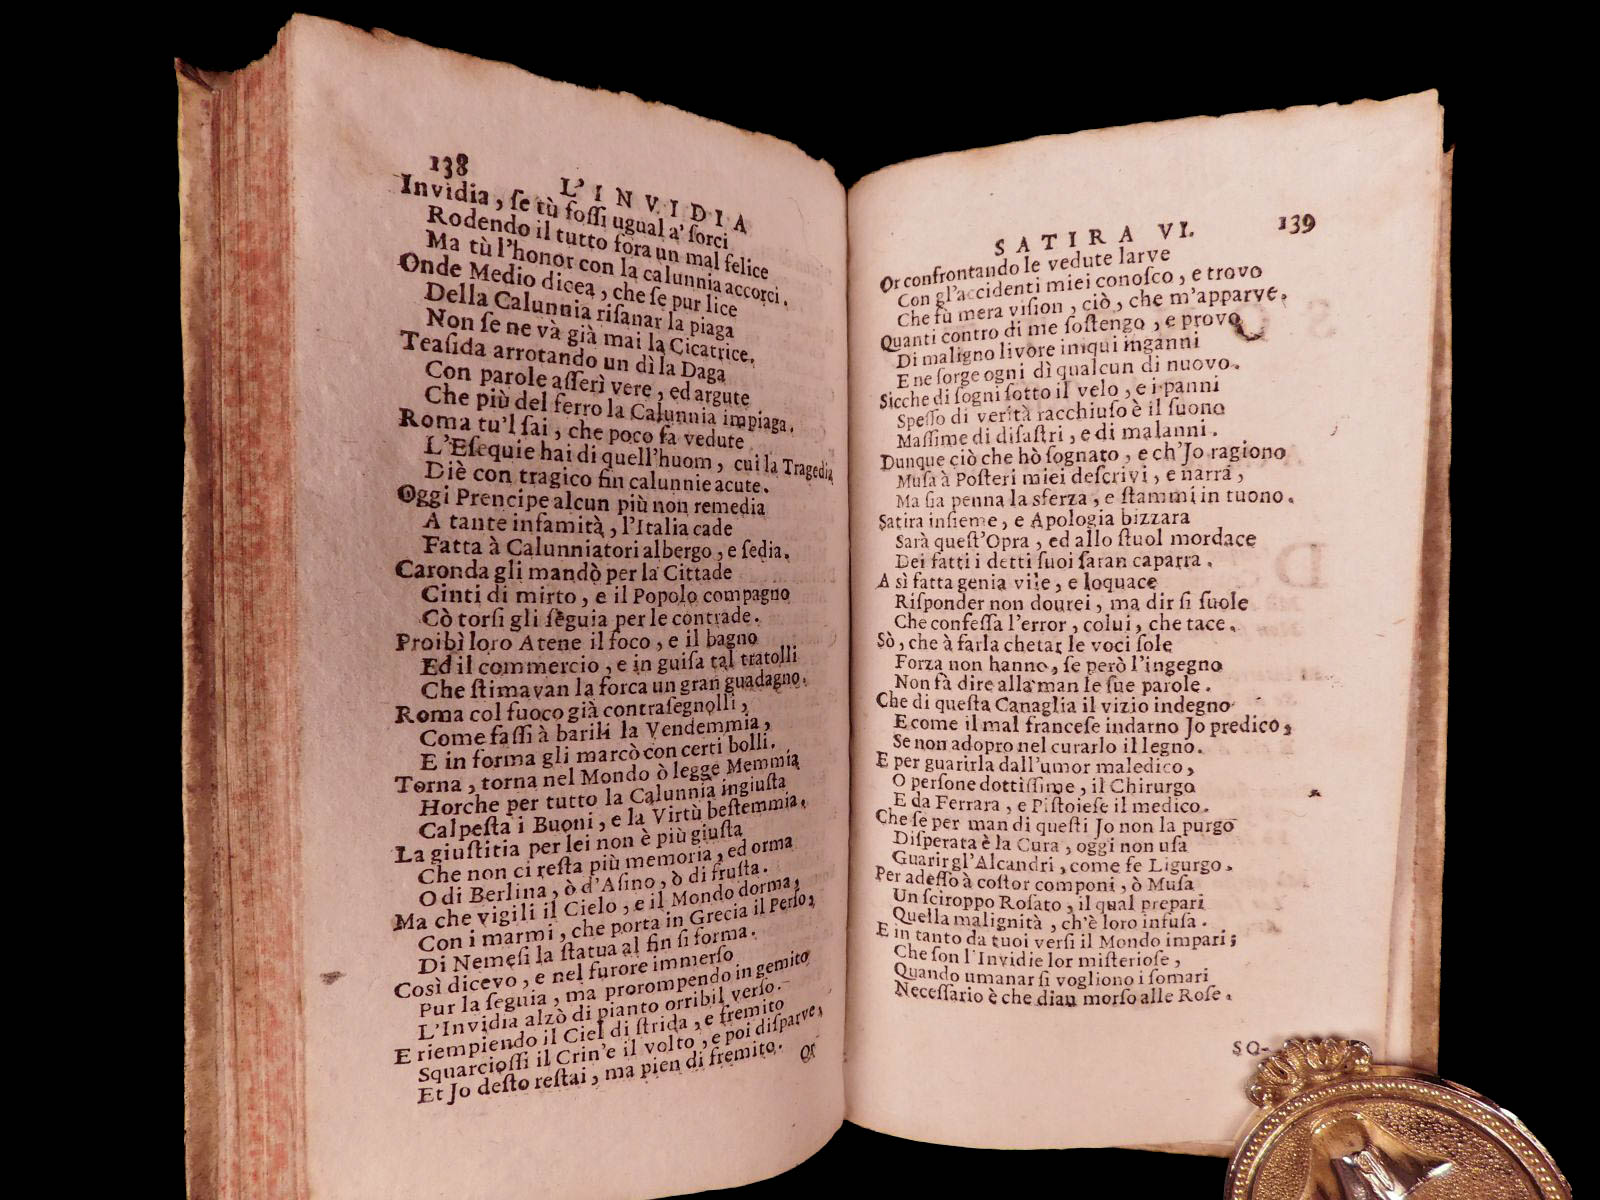 138
L'INVIDIA
Invidia, se tù fossi ugual a' sorci
Rodendo il tutto fora un mal felice
Ma tù l'honor con la calunnia accorci.
Onde Medio dicea, che se pur lice
Della Calunnia risanar la piaga
Non se ne và già mai la Cicatrice.
Teasida arrotando un dì la Daga
Con parole asserì vere, ed argute
Che più del ferro la Calunnia impiaga.
Roma tu'l sai, che poco fa vedute
L'Esequie hai di quell'huom, cui la Tragedia
Diè con tragico fin calunnie acute.
Oggi Prencipe alcun più non remedia
A tante infamità, l'Italia cade
Fatta à Calunniatori albergo, e sedia.
Caronda gli mandò per la Cittade
Cinti di mirto, e il Popolo compagno
Cò torsi gli seguia per le contrade.
Proibì loro Atene il foco, e il bagno
Ed il commercio, e in guisa tal tratolli
Che stimavan la forca un gran guadagno.
Roma col fuoco già contrasegnolli,
Come fassi à barili la Vendemmia,
E in forma gli marcò con certi bolli.
Torna, torna nel Mondo ò legge Memmia
Horche per tutto la Calunnia ingiusta
Calpesta i Buoni, e la Virtù bestemmia.
La giustitia per lei non è più giusta
Che non ci resta più memoria, ed orma
O di Berlina, ò d'Asino, ò di frusta.
Ma che vigili il Cielo, e il Mondo dorma,
Con i marmi, che porta in Grecia il Perso,
Di Nemesi la statua al fin si forma.
Così dicevo, e nel furore immerso
Pur la seguia, ma prorompendo in gemito
L'Invidia alzò di pianto orribil verso.
E riempiendo il Ciel di strida, e fremito
Squarciossi il Crin'e il volto, e poi disparve,
Et Jo desto restai, ma pien di fremito.
Or
SATIRA VI.
139
Or confrontando le vedute larve
Con gl'accidenti miei conosco, e trovo
Che fù mera vision, ciò, che m'apparve.
Quanti contro di me sostengo, e provo
Di maligno livore iniqui inganni
E ne sorge ogni dì qualcun di nuovo.
Sicche di sogni sotto il velo, e i panni
Spesso di verità racchiuso è il suono
Massime di disastri, e di malanni.
Dunque ciò che hò sognato, e ch'Jo ragiono
Musa à Posteri miei descrivi, e narra,
Ma sia penna la sferza, e stammi in tuono.
Satira insieme, e Apologia bizzara
Sarà quest'Opra, ed allo stuol mordace
Dei fatti i detti suoi saran caparra.
A sì fatta genia vile, e loquace
Risponder non dourei, ma dir si suole
Che confessa l'error, colui, che tace.
Sò, che à farla chetar le voci sole
Forza non hanno, se però l'ingegno
Non fà dire alla man le sue parole.
Che di questa Canaglia il vizio indegno
E come il mal francese indarno Jo predico,
Se non adopro nel curarlo il legno.
E per guarirla dall'umor maledico,
O persone dottissime, il Chirurgo
E da Ferrara, e Pistoiese il medico.
Che se per man di questi Jo non la purgo
Disperata è la Cura, oggi non usa
Guarir gl'Alcandri, come fe Ligurgo.
Per adesso à costor componi, ò Musa
Un sciroppo Rosato, il qual prepari
Quella malignità, ch'è loro infusa.
E in tanto da tuoi versi il Mondo impari;
Che son l'Invidie lor misteriose,
Quando umanarsi vogliono i somari
Necessario è che dian morso alle Rose.
SO-